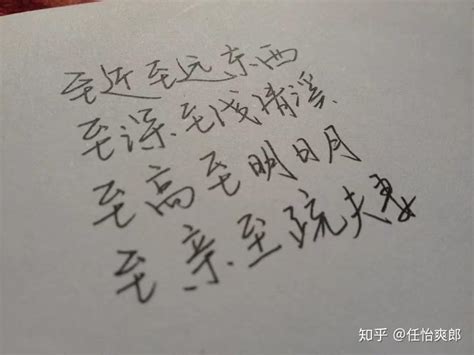 至近至远东西
至深至浅清溪
至高至明日月
至亲至疏夫妻
知乎 @任怡爽郎